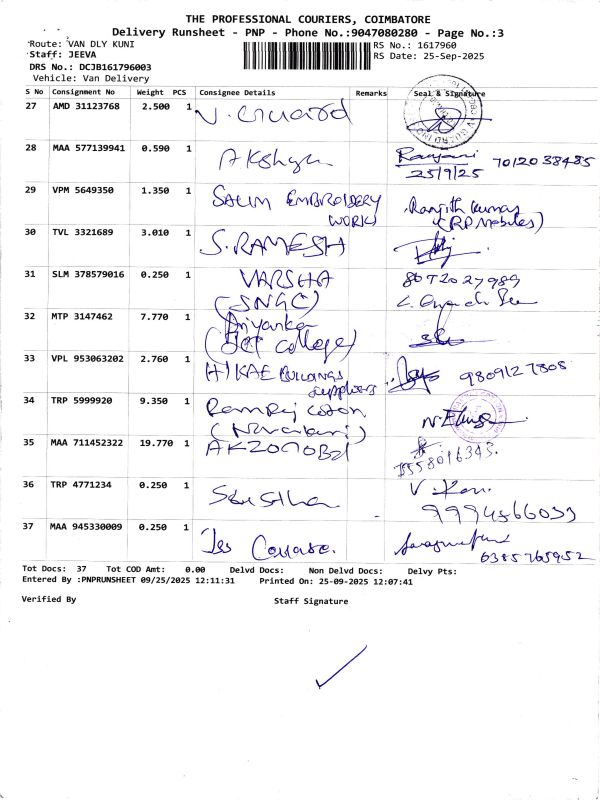 THE PROFESSIONAL COURIERS, COIMBATORE
Delivery Runsheet - PNP - Phone No.:9047080280 - Page No.:3
Route: VAN DLY KUNI
Staff: JEEVA
DRS No.: DCJB161796003
Vehicle: Van Delivery
RS No.: 1617960
RS Date: 25-Sep-2025
S No Consignment No Weight PCS Consignee Details Remarks Seal & Signature
27 AMD 31123768 2.500 1
28 MAA 577139941 0.590 1 Akshya 7012038485
25/9/25
29 VPM 5649350 1.350 1 SALIM EMBROIDERY WORKS Ranjith Kumar
(RP Mobiles)
30 TVL 3321689 3.010 1 S. RAMESH
31 SLM 378579016 0.250 1 VARSHA
(SNGC)
32 MTP 3147462 7.770 1 Priyanka
College)
33 VPL 953063202 2.760 1 BUILDINGS suppliers 9809127808
34 TRP 5999920 9.350 1
35 MAA 711452322 19.770 1
36 TRP 4771234 0.250 1
37 MAA 945330009 0.250 1 6385765952
Tot Docs: 37 Tot COD Amt: 0.00 Delvd Docs: Non Delvd Docs: Delvy Pts:
Entered By :PNPRUNSHEET 09/25/2025 12:11:31 Printed On: 25-09-2025 12:07:41
Verified By Staff Signature